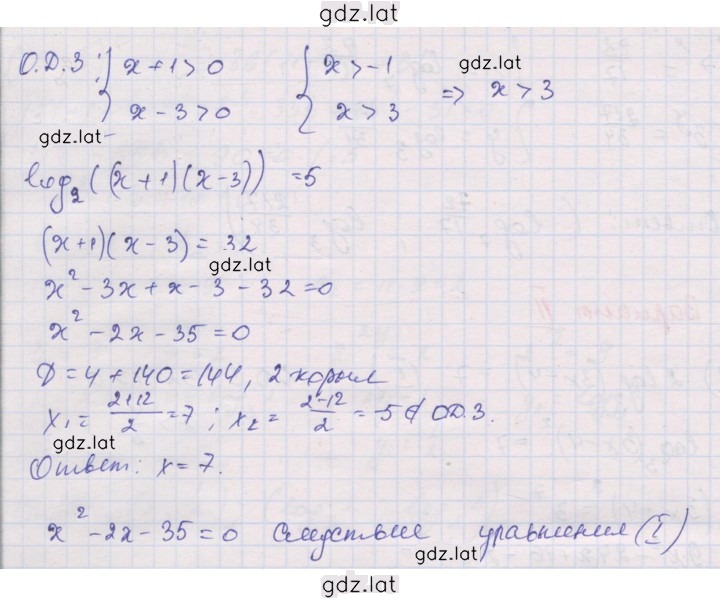 gdz.lat
О.Д.З: { x+1>0 { x>-1 gdz.lat
x-3>0 x>3 => x>3
gdz.lat
log₂((x+1)(x-3)) =5
(x+1)(x-3)= 32
gdz.lat
x²-3x+x-3-32=0
x²-2x-35=0
D=4+140=144, 2 корня
x₁= (2+12)/2 =7; x₂= (2-12)/2 = -5 ∉ О.Д.З.
Ответ: x=7.
x²-2x-35=0 следствие уравнения (I)
gdz.lat
gdz.lat